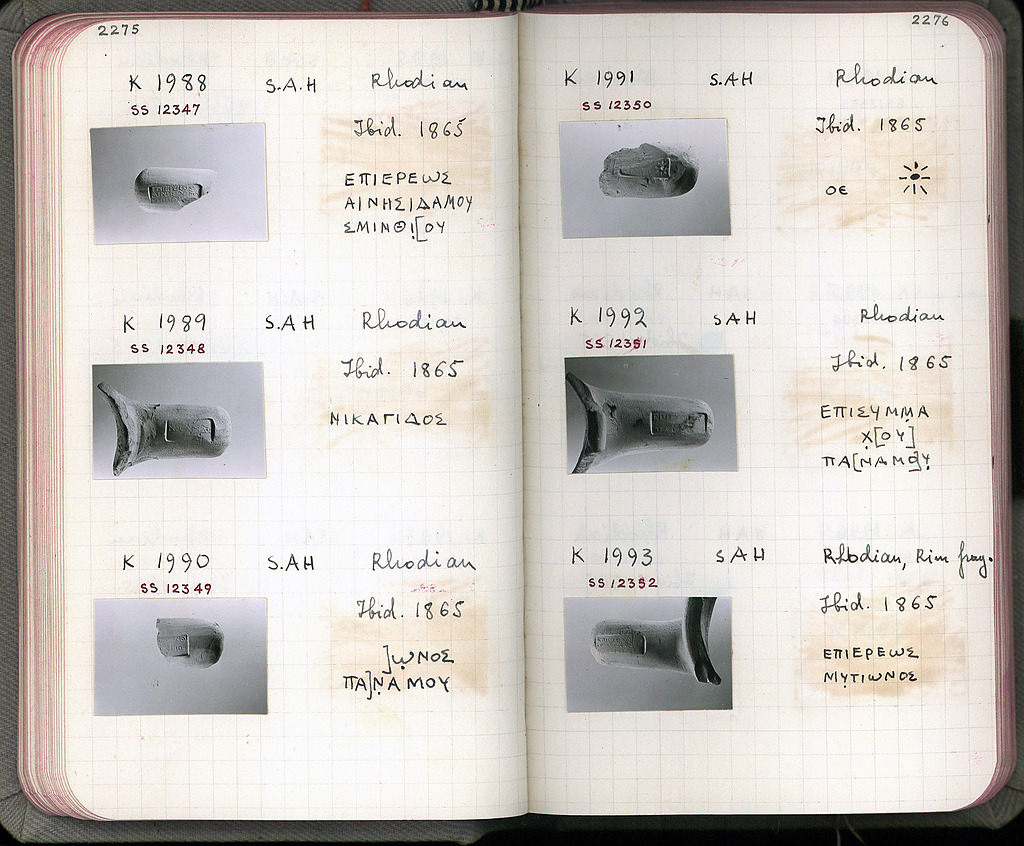 2275
K 1988 S.A.H Rhodian
SS 12347
Ibid. 1865
ΕΠΙΕΡΕΩΣ
ΑΙΝΗΣΙΔΑΜΟΥ
ΣΜΙΝΘΙ[ΟΥ
K 1989 S.AH Rhodian
SS 12348
Ibid. 1865
ΝΙΚΑΓΙΔΟΣ
K 1990 S.AH Rhodian
SS 12349
Ibid. 1865
]ΩΝΟΣ
ΠΑ]ΝΑΜΟΥ
2276
K 1991 S.AH Rhodian
SS 12350
Ibid. 1865
ΟΕ
K 1992 SAH Rhodian
SS 12351
Ibid. 1865
ΕΠΙΣΥΜΜΑ
Χ[ΟΥ]
ΠΑ[ΝΑΜΟ]Υ
K 1993 SAH Rhodian, Rim frag.
SS 12352
Ibid. 1865
ΕΠΙΕΡΕΩΣ
ΜΥΤΙΩΝΟΣ